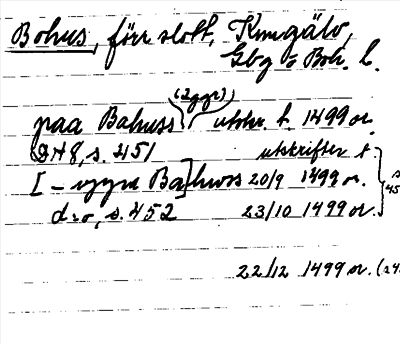 Bohus, förr slott, Kungälv,
Gbg o Boh. l.
(2 ggr)
paa Bahuss utskr. t. 1499 or.
DN 8, s. 451 utskrifter t.
[ - uppa Ba]hws 20/9 1499 or.
d:o, s. 452 23/10 1499 or.
22/12 1499 or.